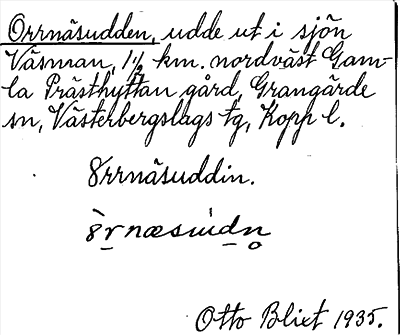 Orrnäsudden, udde ut i sjön
Väsman, 1½ km. nordväst Gam-
la Prästhyttan gård, Grangärde
sn, Västerbergslags tg, Kopp l.
8rrnäsuddin.
Otto Blixt 1935.